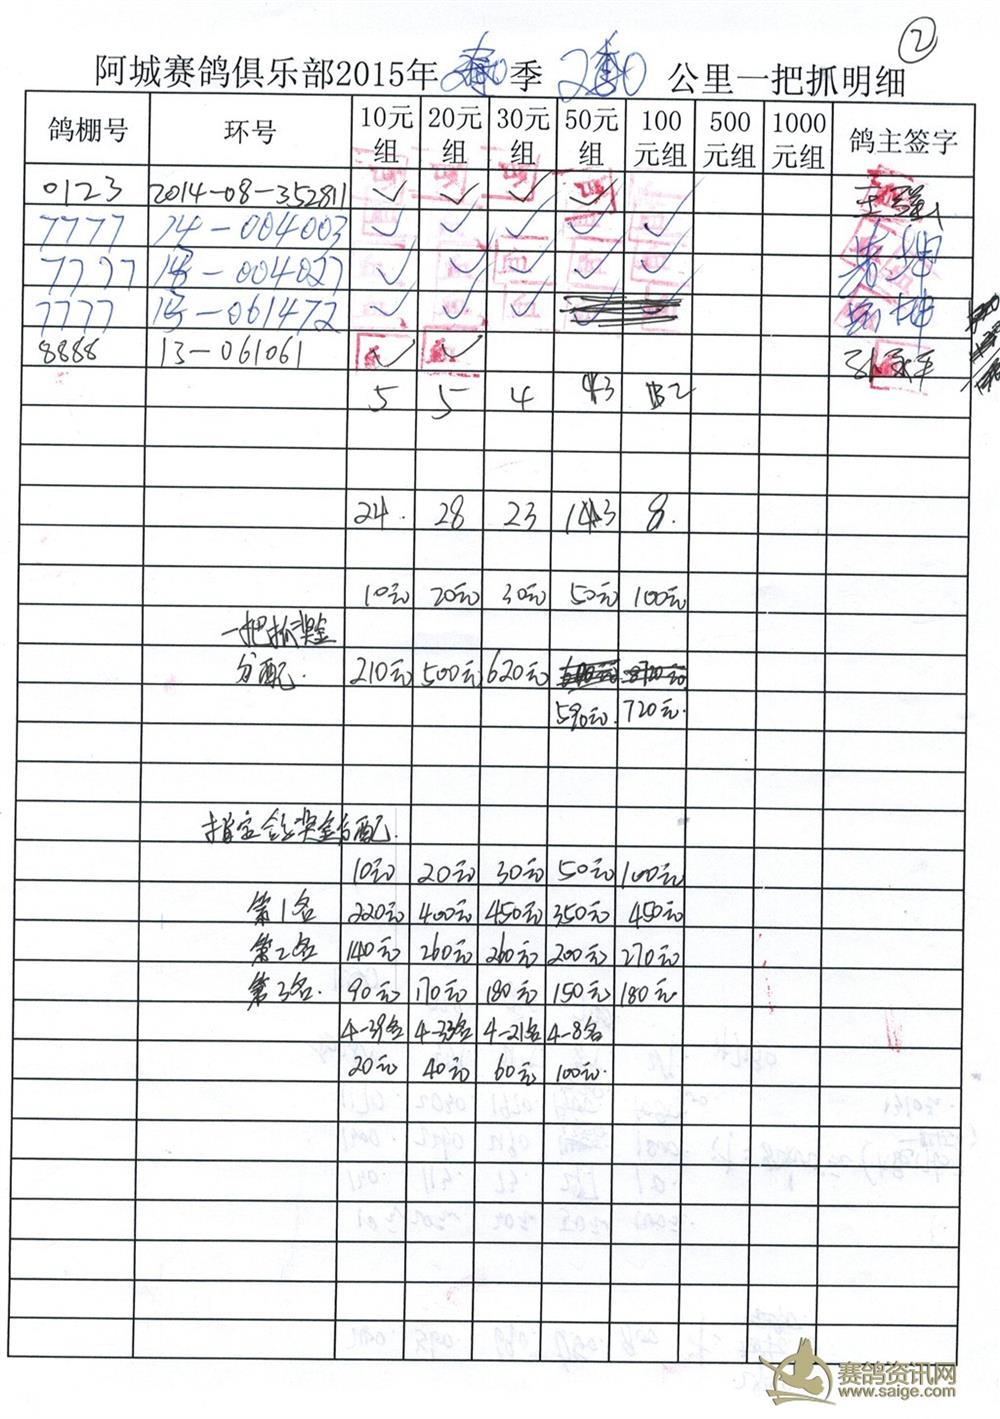 ②
阿城赛鸽俱乐部2015年 季 公里一把抓明细
鸽棚号 环号 10元组 20元组 30元组 50元组 100元组 500元组 1000元组 鸽主签字
0123 2014-08-352811 ✓ ✓ ✓ ✓
7777 14-004003 ✓ ✓ ✓ ✓ ✓
7777 13-004027 ✓ ✓ ✓ ✓ ✓
7777 13-061472 ✓ ✓ ✓
8888 13-061061 ✓ ✓
5 5 4 3 2
24. 28 23 13 8.
10元 20元 30元 50元 100元
一把抓奖金
分配. 210元 500元 620元
590元. 720元.
指定 奖金分配.
10元 20元 30元 50元 100元
第1名 220元 400元 450元 350元 450元
第2名 140元 260元 260元 200元 270元
第3名. 90元 170元 180元 150元 180元
4-39名 4-33名 4-21名 4-8名
20元 40元 60元 100元.
赛鸽资讯网
www.saige.com